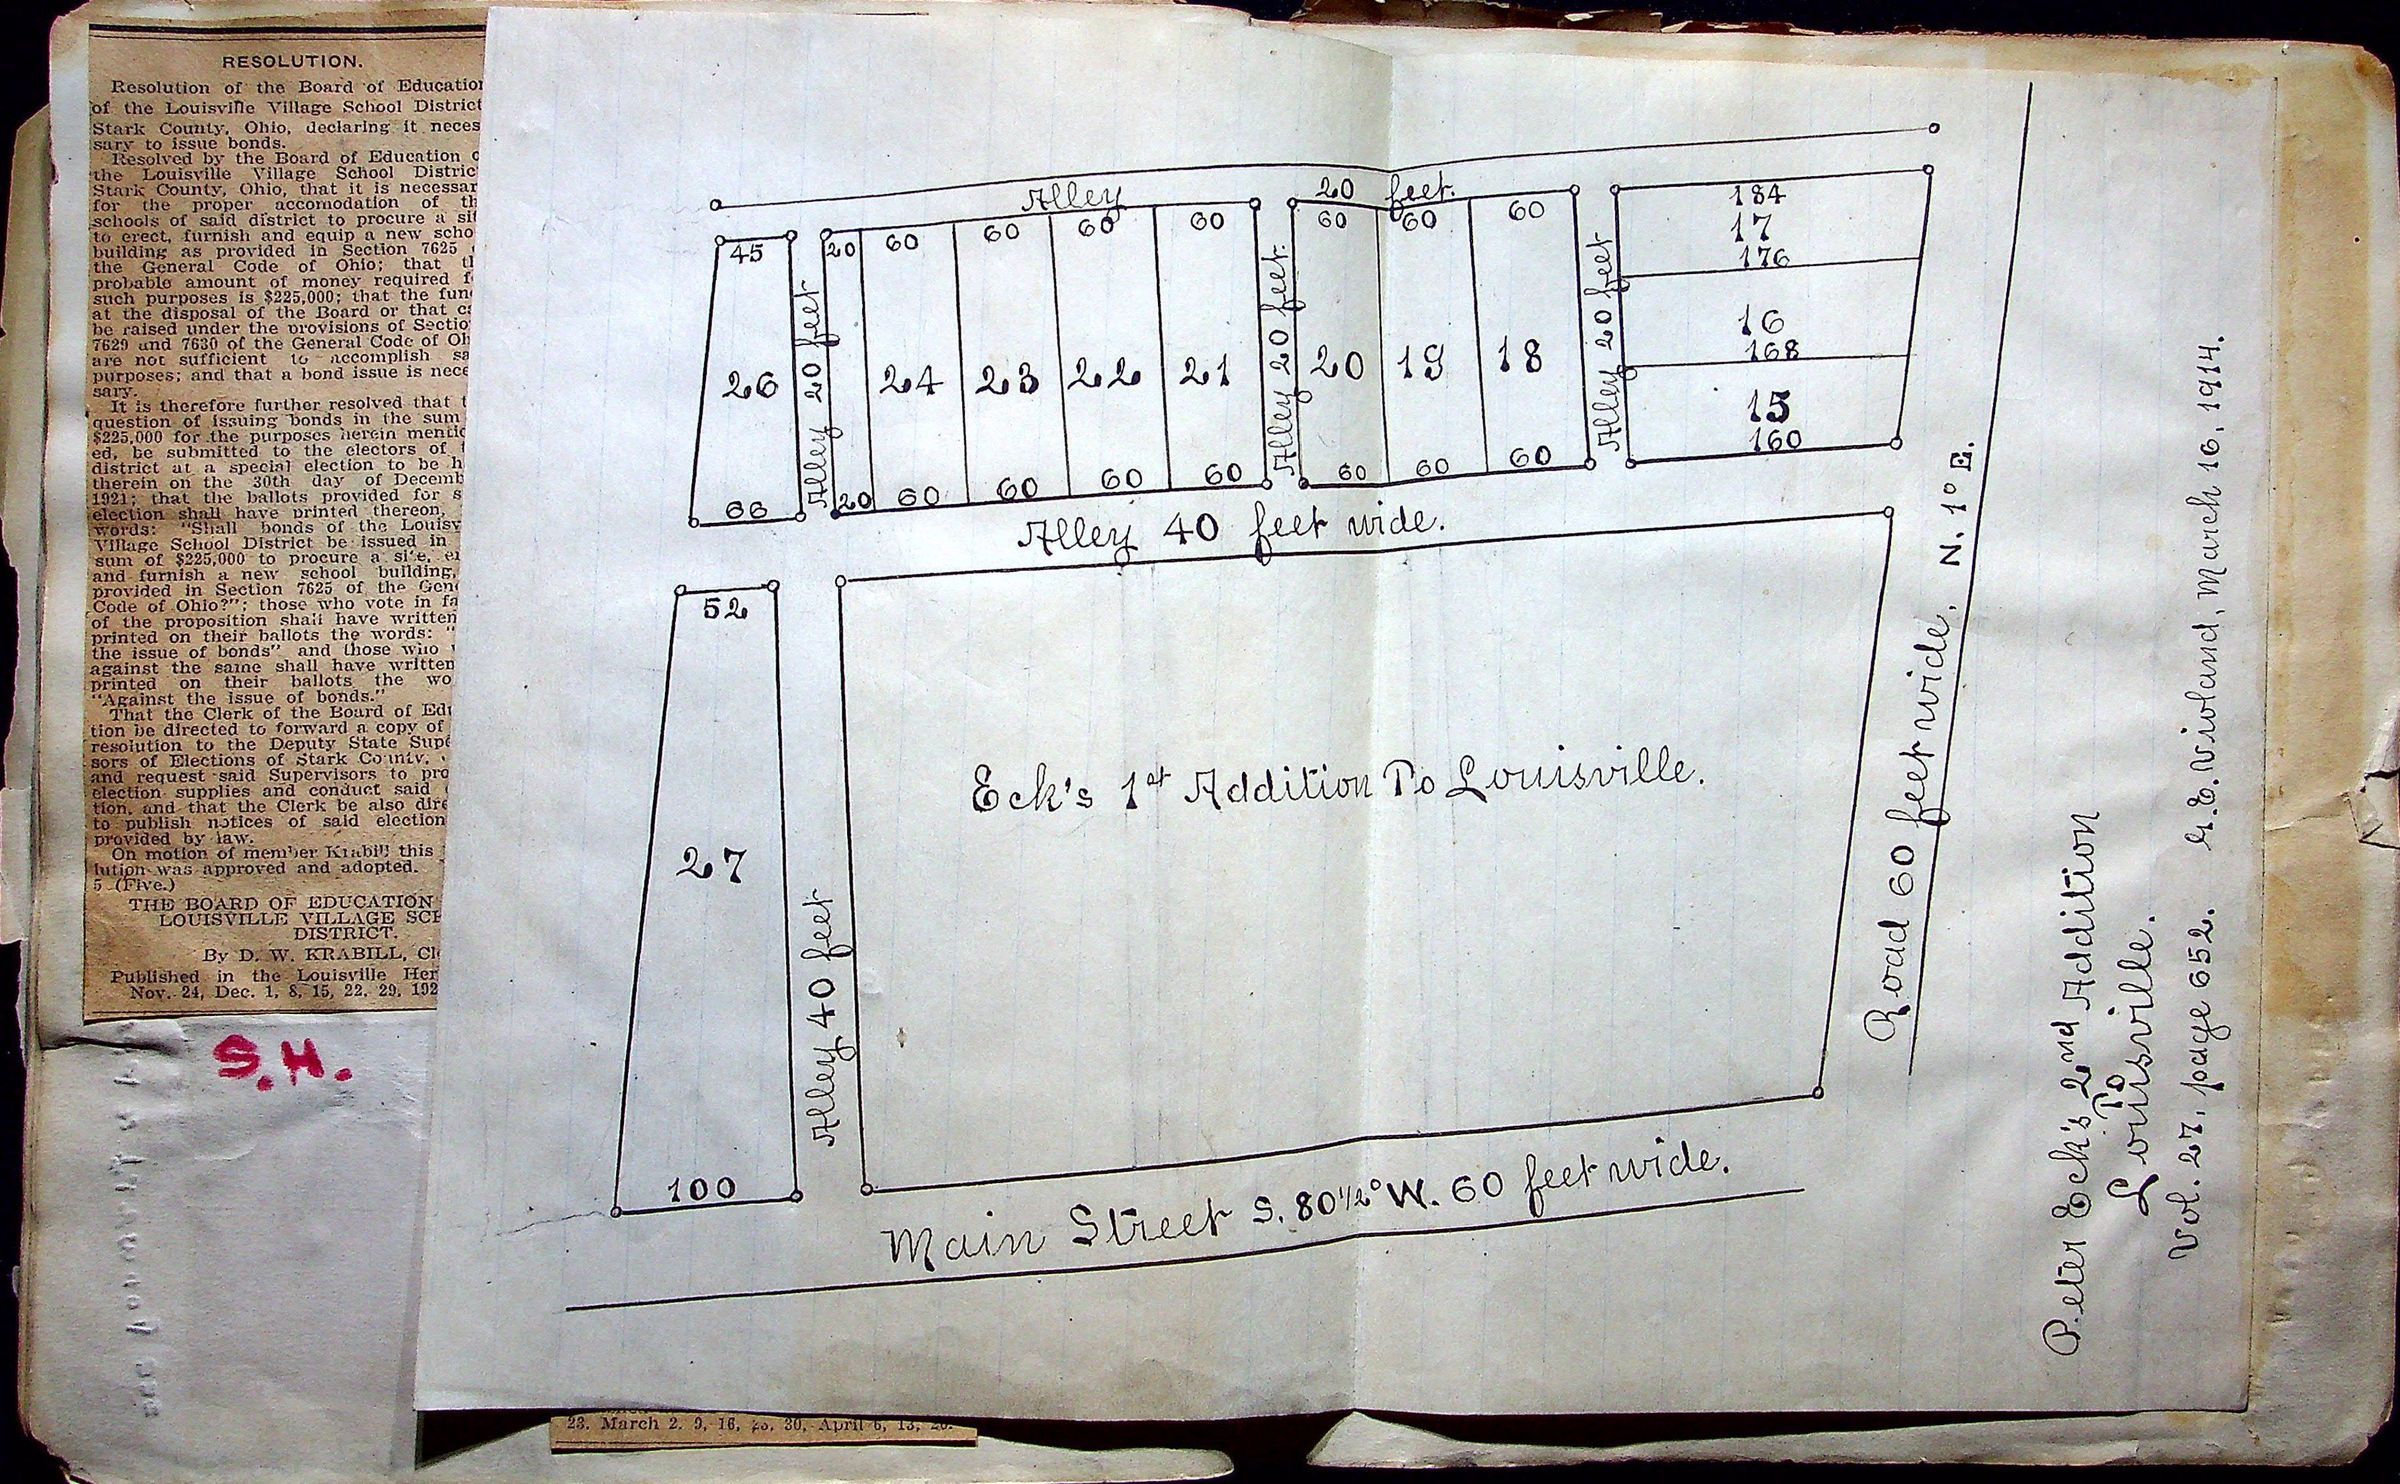 RESOLUTION.
Resolution of the Board of Education
of the Louisville Village School District
Stark County, Ohio, declaring it neces
sary to issue bonds.
Resolved by the Board of Education
the Louisville Village School Distric
Stark County, Ohio, that it is necessar
for the proper accomodation of th
schools of said district to procure a sit
to erect, furnish and equip a new scho
building as provided in Section 7625
the General Code of Ohio; that th
probable amount of money required f
such purposes is $225,000; that the fun
at the disposal of the Board or that ca
be raised under the provisions of Sectio
7629 and 7630 of the General Code of Oh
are not sufficient to accomplish sa
purposes; and that a bond issue is nece
sary.
It is therefore further resolved that t
question of issuing bonds in the sum
$225,000 for the purposes herein mentio
ed, be submitted to the electors of
district at a special election to be h
therein on the 30th day of Decemb
1921; that the ballots provided for s
election shall have printed thereon,
words: "Shall bonds of the Louisv
Village School District be issued in
sum of $225,000 to procure a site, er
and furnish a new school building,
provided in Section 7625 of the Gene
Code of Ohio?"; those who vote in fa
of the proposition shall have written
printed on their ballots the words: "
the issue of bonds" and those who
against the same shall have written
printed on their ballots the wo
"Against the issue of bonds."
That the Clerk of the Board of Edu
tion be directed to forward a copy of
resolution to the Deputy State Supe
sors of Elections of Stark County,
and request said Supervisors to pro
election supplies and conduct said
tion, and that the Clerk be also dire
to publish notices of said election
provided by law.
On motion of member Krabill this
lution was approved and adopted.
5 (Five.)
THE BOARD OF EDUCATION
LOUISVILLE VILLAGE SCH
DISTRICT.
By D. W. KRABILL, Cle
Published in the Louisville Her
Nov. 24, Dec. 1, 8, 15, 22, 29, 192
S.H.
23. March 2, 9, 16, 23, 30, April 6, 13, 20.
Alley 20 feet.
45
26
66
Alley 20 feet
20
20
60
24
60
60
23
60
60
22
60
60
21
60
Alley 20 feet.
60
20
60
60
19
60
60
18
60
Alley 20 feet
184
17
176
16
168
15
160
Alley 40 feet wide.
52
27
100
Alley 40 feet
Eck's 1st Addition To Louisville.
Road 60 feet wide. N. 1° E.
Main Street S. 80 1/2° W. 60 feet wide.
Peter Eck's 2nd Addition
To
Louisville.
Vol. 27, page 652. G. E. Violand, March 16, 1914.